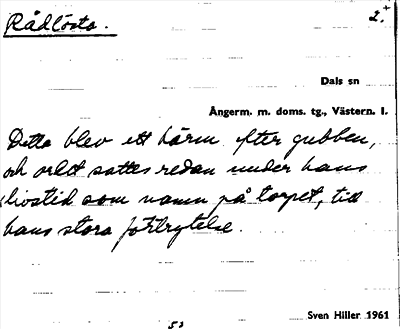 Rådlösta. 2.+
Dals sn
Ångerm. m. doms. tg., Västern. l.
Detta blev ett härm efter gubben,
och ordet sattes redan under hans
livstid som namn på torpet, till
hans stora förtrytelse.
Sven Hiller 1961